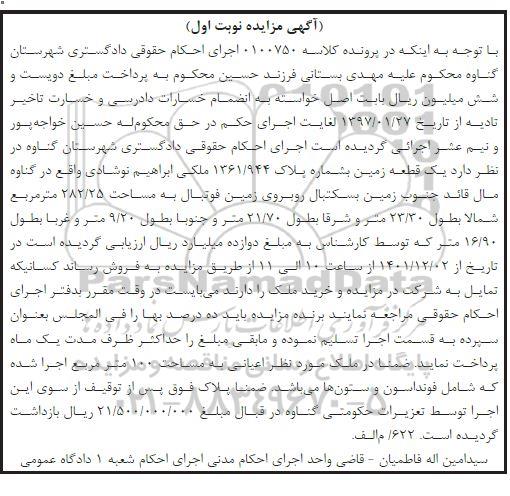 (آگهی مزایده نوبت اول)
با توجه به اینکه در پرونده کلاسه ۰۱۰۰۷۵۰ اجرای احکام حقوقی دادگستری شهرستان
گناوه محکوم علیه مهدی بستانی فرزند حسین محکوم به پرداخت مبلغ دویست و
شش میلیون ریال بابت اصل خواسته به انضمام خسارات دادرسی و خسارت تاخیر
تادیه از تاریخ ۱۳۹۷/۰۱/۲۷ لغایت اجرای حکم در حق محکوم‌له حسین خواجه‌پور
و نیم عشر اجرائی گردیده است اجرای احکام حقوقی دادگستری شهرستان گناوه در
نظر دارد یک قطعه زمین بشماره پلاک ۱۳۶۱/۹۴۴ ملکی ابراهیم نوشادی واقع در گناوه
مال قائد جنوب زمین بسکتبال روبروی زمین فوتبال به مساحت ۲۸۲/۲۵ مترمربع
شمالا بطول ۲۳/۳۰ متر و شرقا بطول ۲۱/۷۰ متر و جنوبا بطول ۹/۲۰ متر و غربا بطول
۱۶/۹۰ متر که توسط کارشناس به مبلغ دوازده میلیارد ریال ارزیابی گردیده است در
تاریخ از ۱۴۰۱/۱۲/۰۲ از ساعت ۱۰ الی ۱۱ از طریق مزایده به فروش رساند کسانیکه
تمایل به شرکت در مزایده و خرید ملک را دارند می‌بایست در وقت مقرر بدفتر اجرای
احکام حقوقی مراجعه نمایند برنده مزایده باید ده درصد بها را فی المجلس بعنوان
سپرده به قسمت اجرا تسلیم نموده و مابقی مبلغ را حداکثر ظرف مدت یک ماه
پرداخت نماید. ضمنا در ملک مورد نظر اعیانی به مساحت ۱۰۰ متر مربع اجرا شده
که شامل فونداسون و ستون‌ها می‌باشد. ضمنا پلاک فوق پس از توقیف از سوی این
اجرا توسط تعزیرات حکومتی گناوه در قبال مبلغ ۲۱/۵۰۰/۰۰۰/۰۰۰ ریال بازداشت
گردیده است. ۶۲۲/ م‌الف.
سیدامین اله فاطمیان - قاضی واحد اجرای احکام مدنی اجرای احکام شعبه ۱ دادگاه عمومی
ParsNamadData
۰۲۱-۸۸۳۴۹۶۷۰-۵